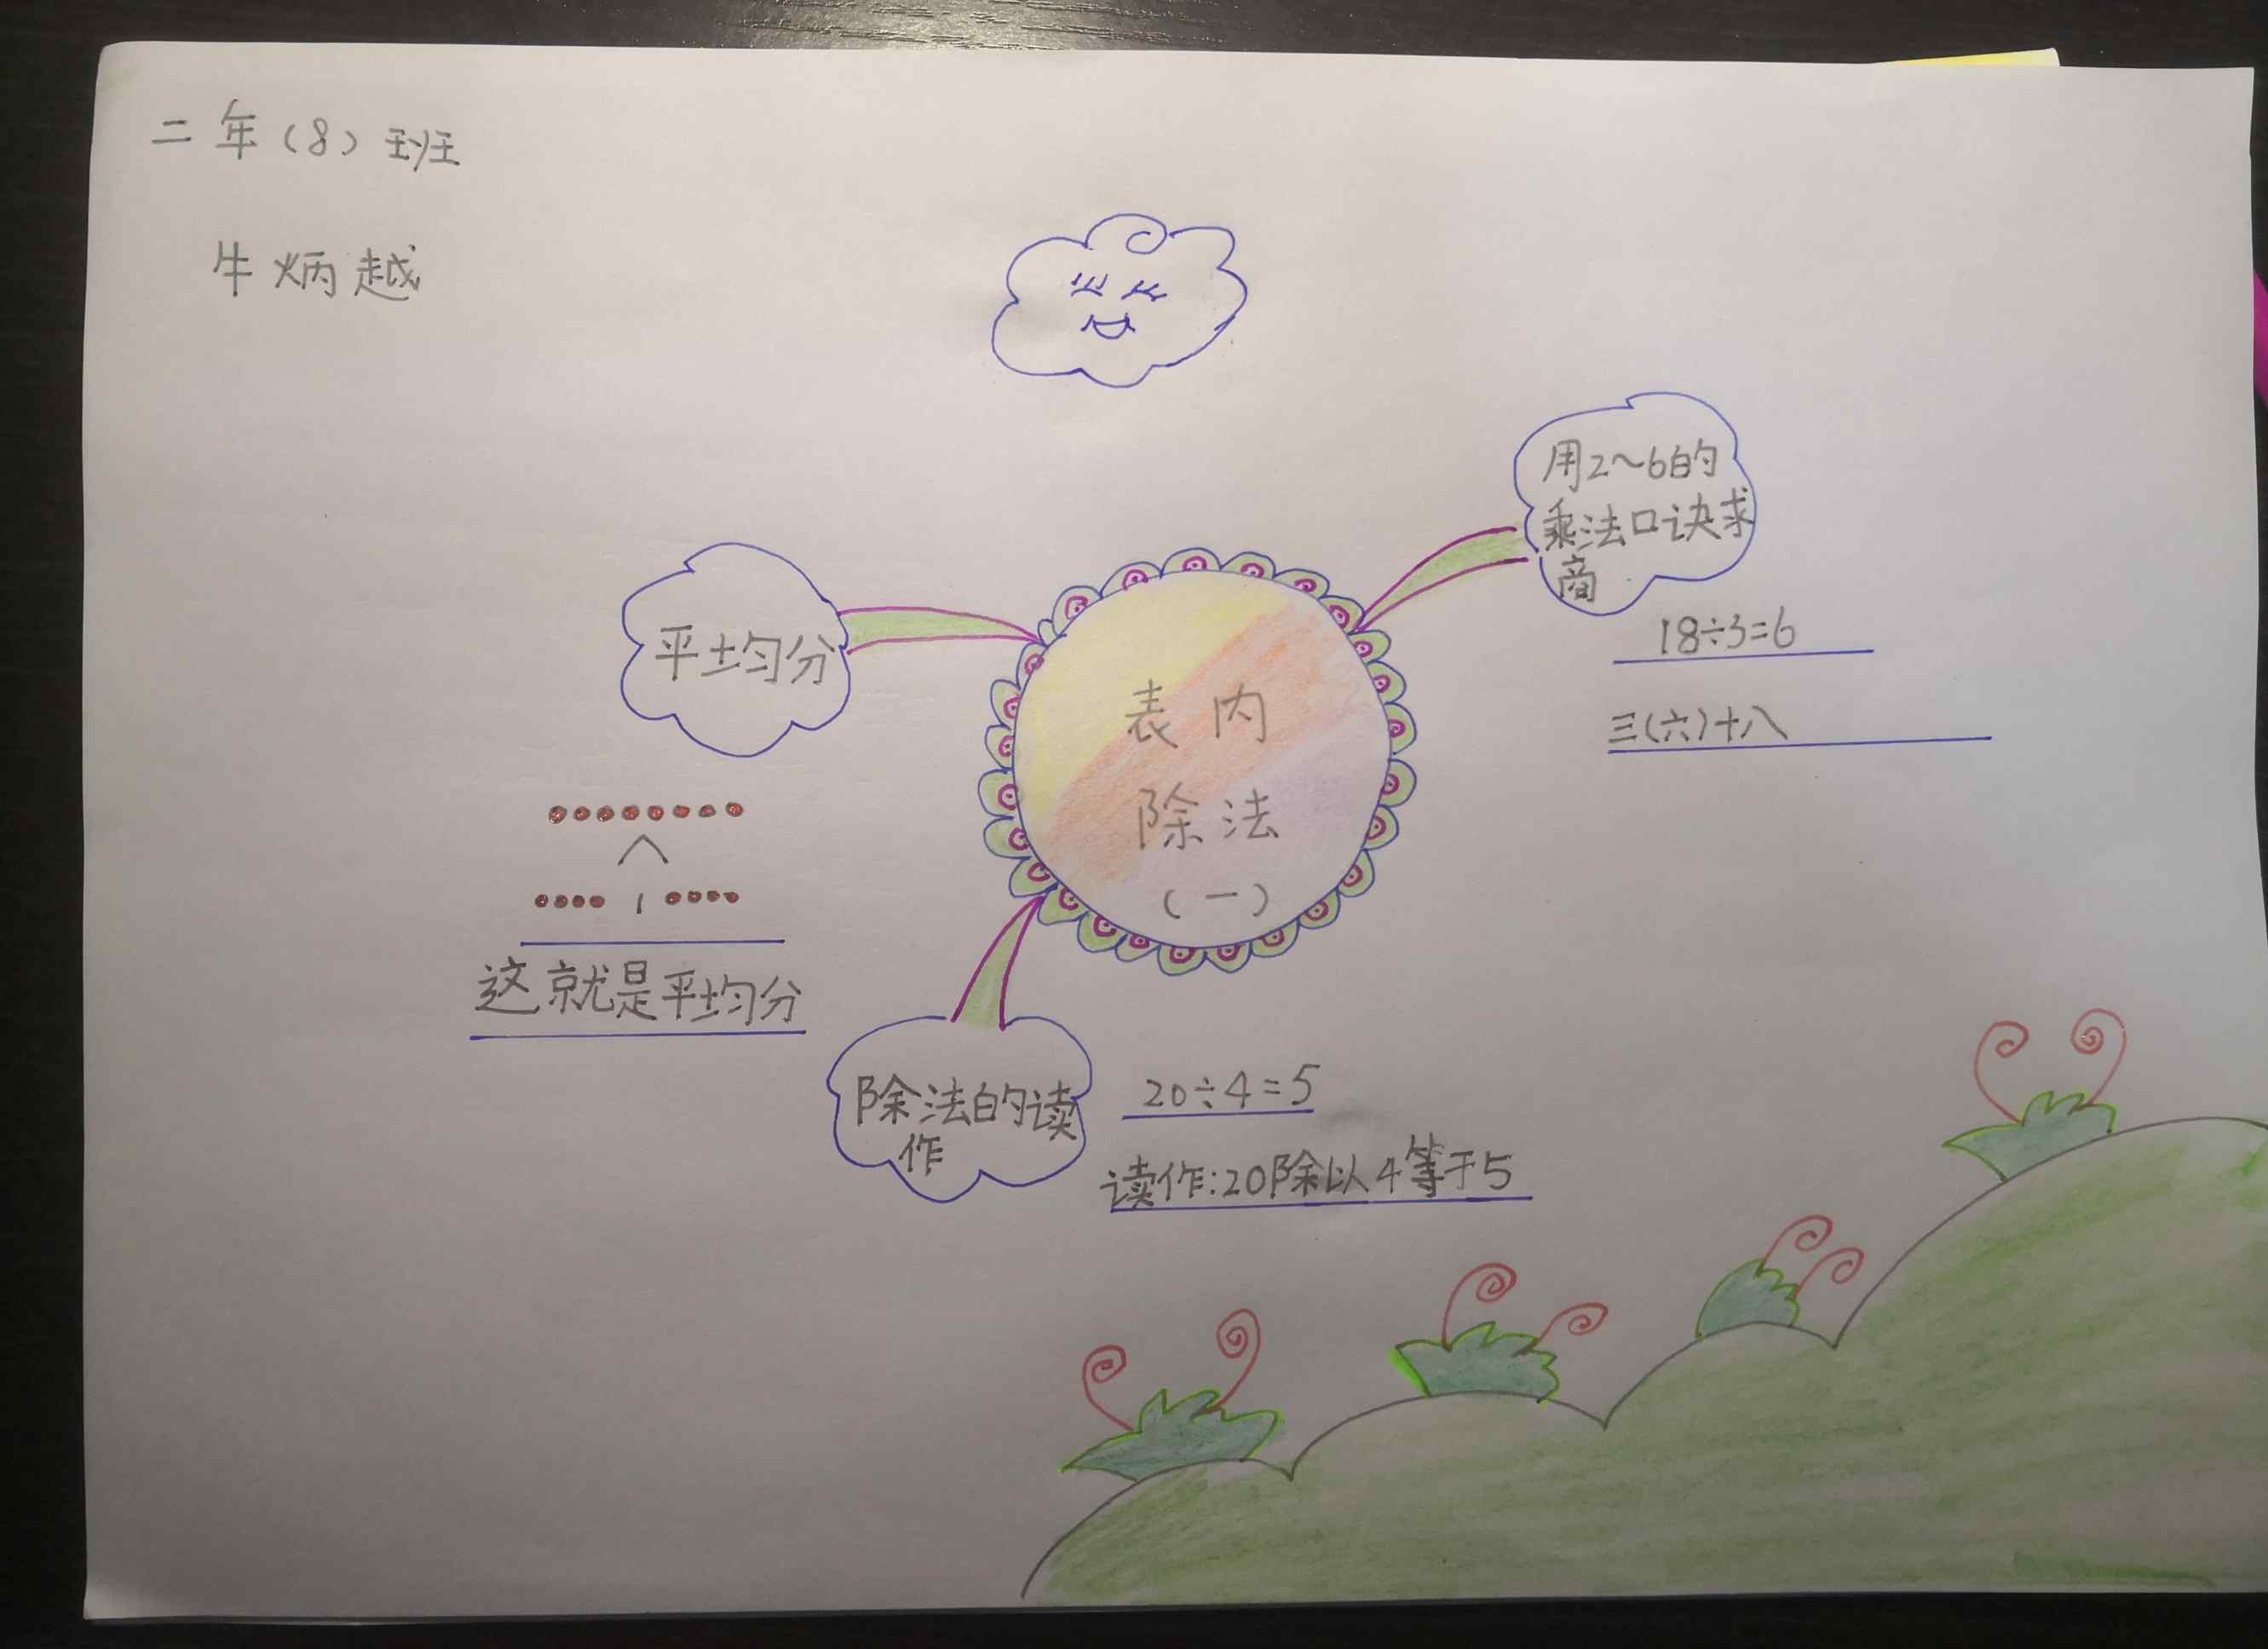 二年（8）班
牛炳越
用2～6的
乘法口诀求
商
18÷3=6
三(六)十八
平均分
这就是平均分
表内
除法
（一）
除法的读
作
20÷4=5
读作:20除以4等于5